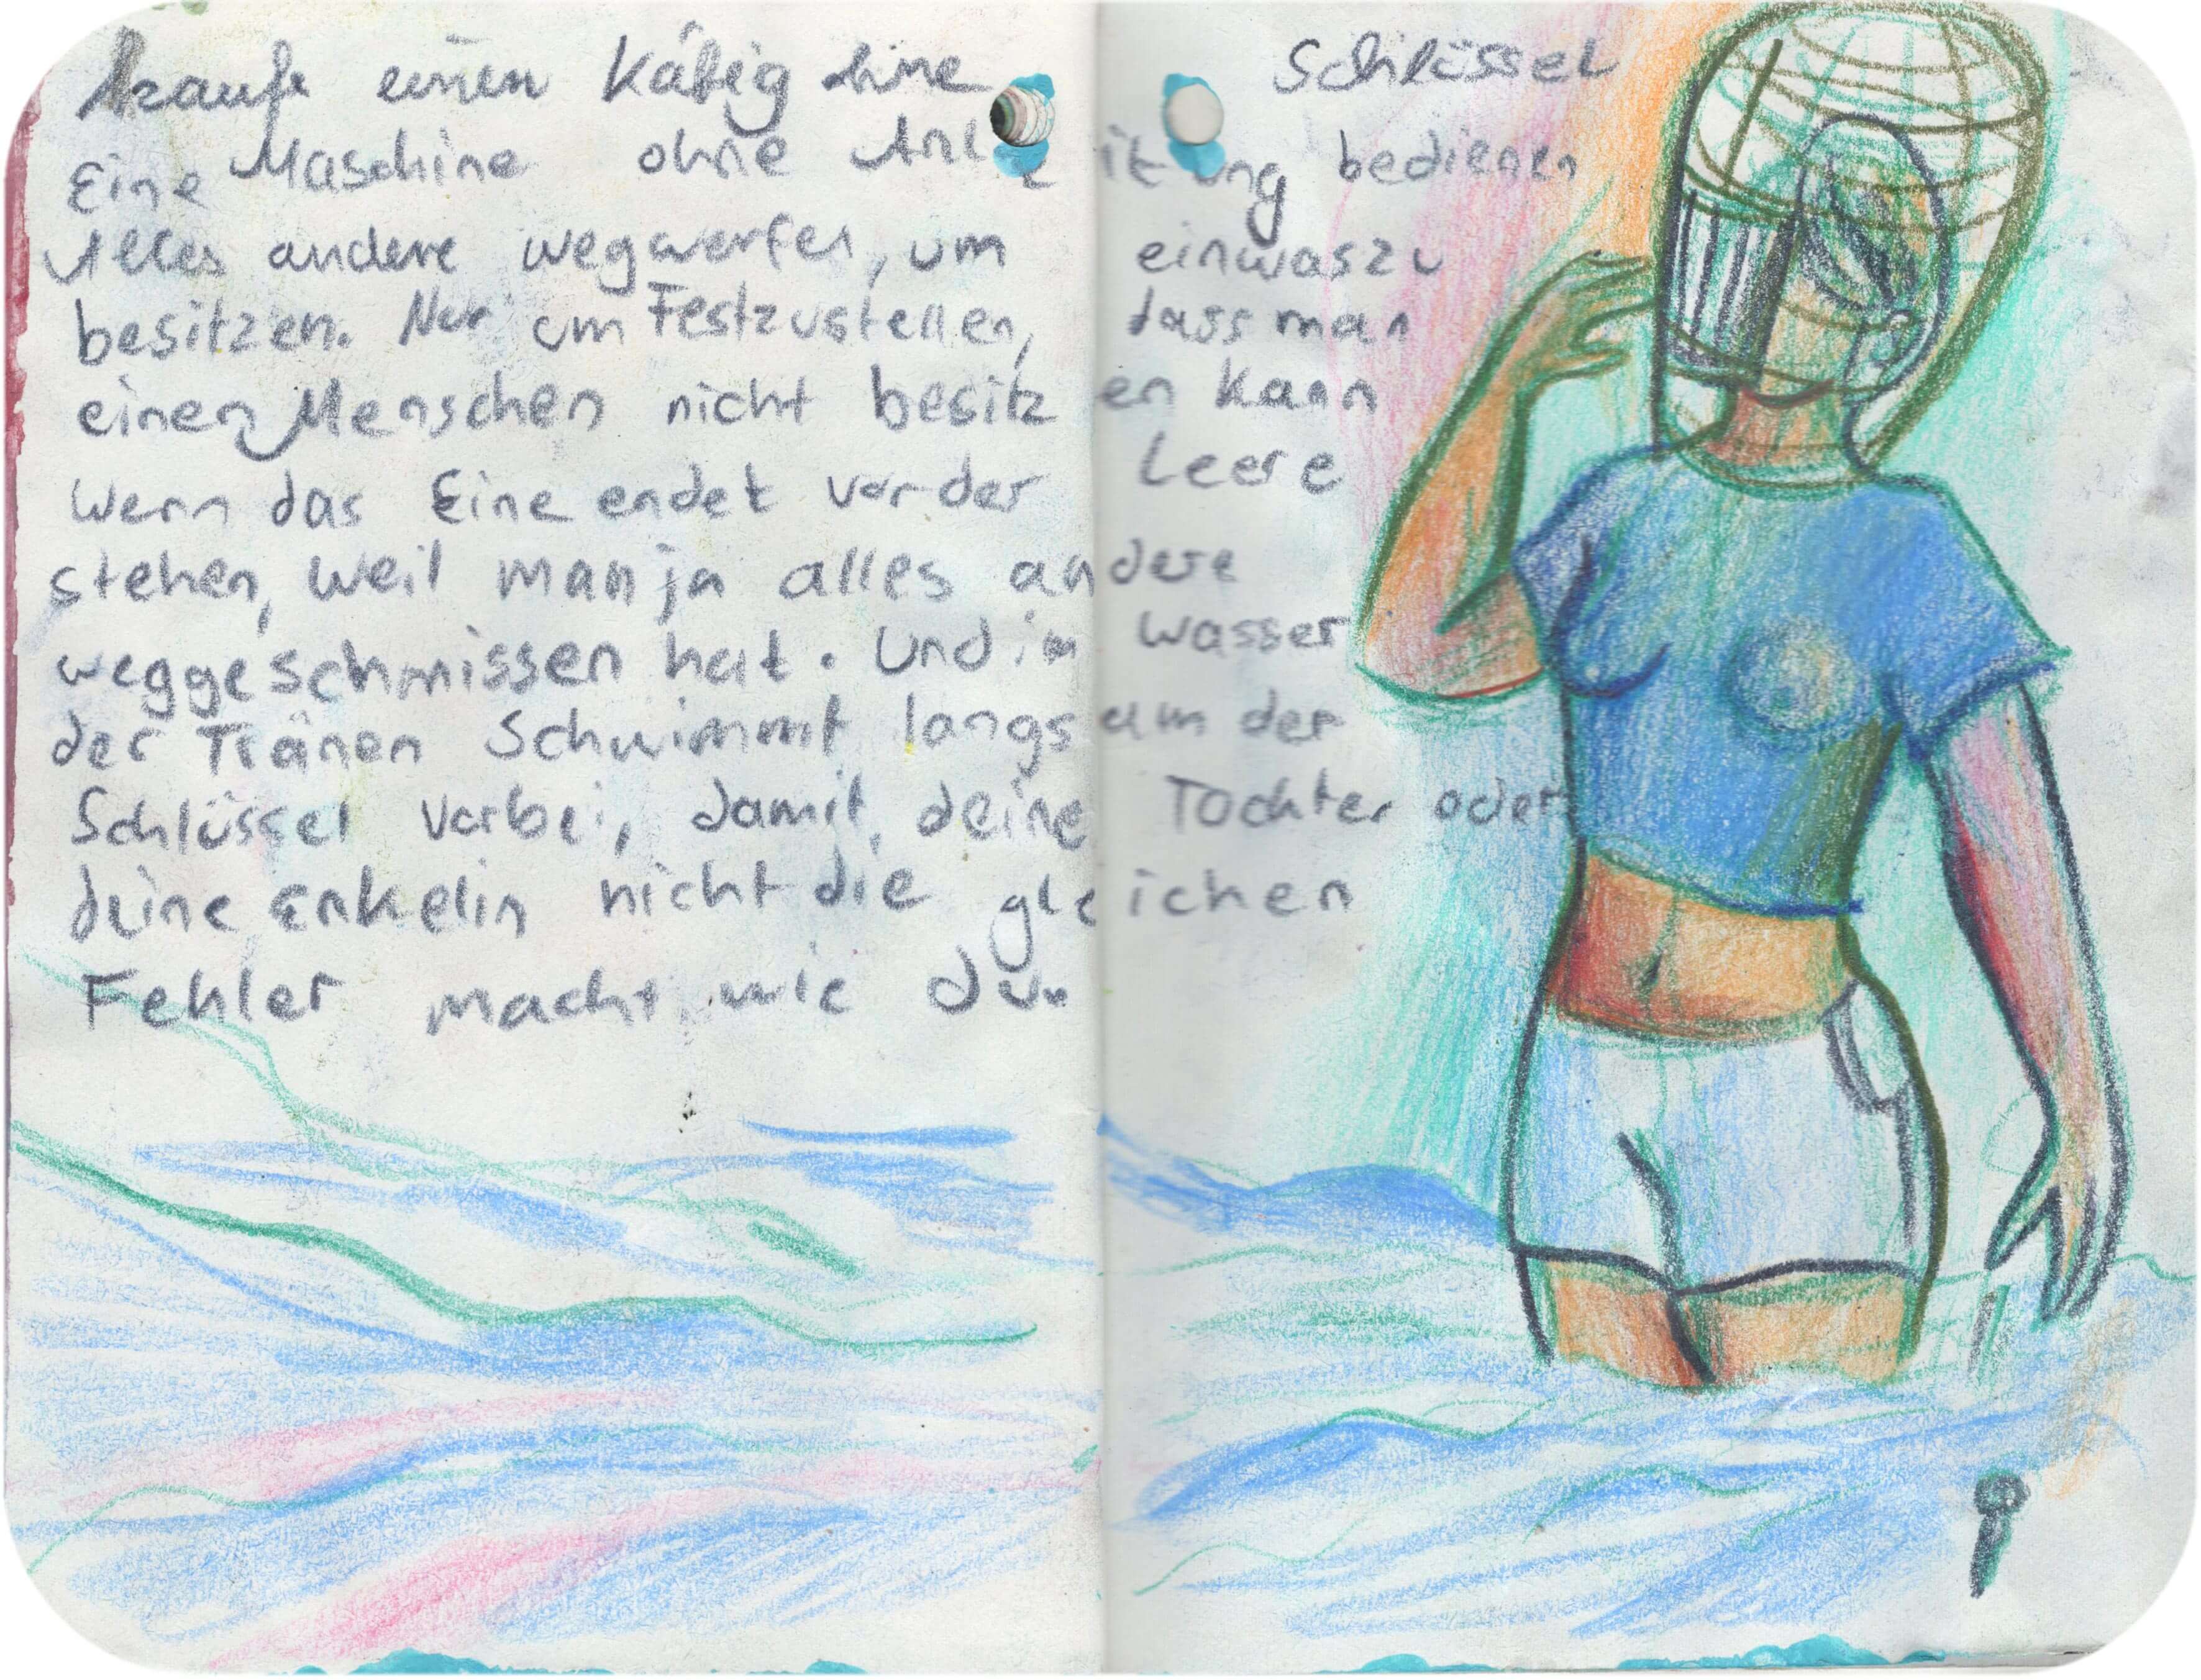 kaufe einen Käfig ohne Schlüssel
Eine Maschine ohne Anleitung bedienen
Alles andere wegwerfen, um einwaszu
besitzen. Nur um Festzustellen, dass man
einen Menschen nicht besitzen kann
Wenn das Eine endet vor der Leere
stehen, weil man ja alles andere
weggeschmissen hat. Und im Wasser
der Tränen Schwimmt langsam der
Schlüssel vorbei, damit deine Tochter oder
deine Enkelin nicht die gleichen
Fehler macht wie du